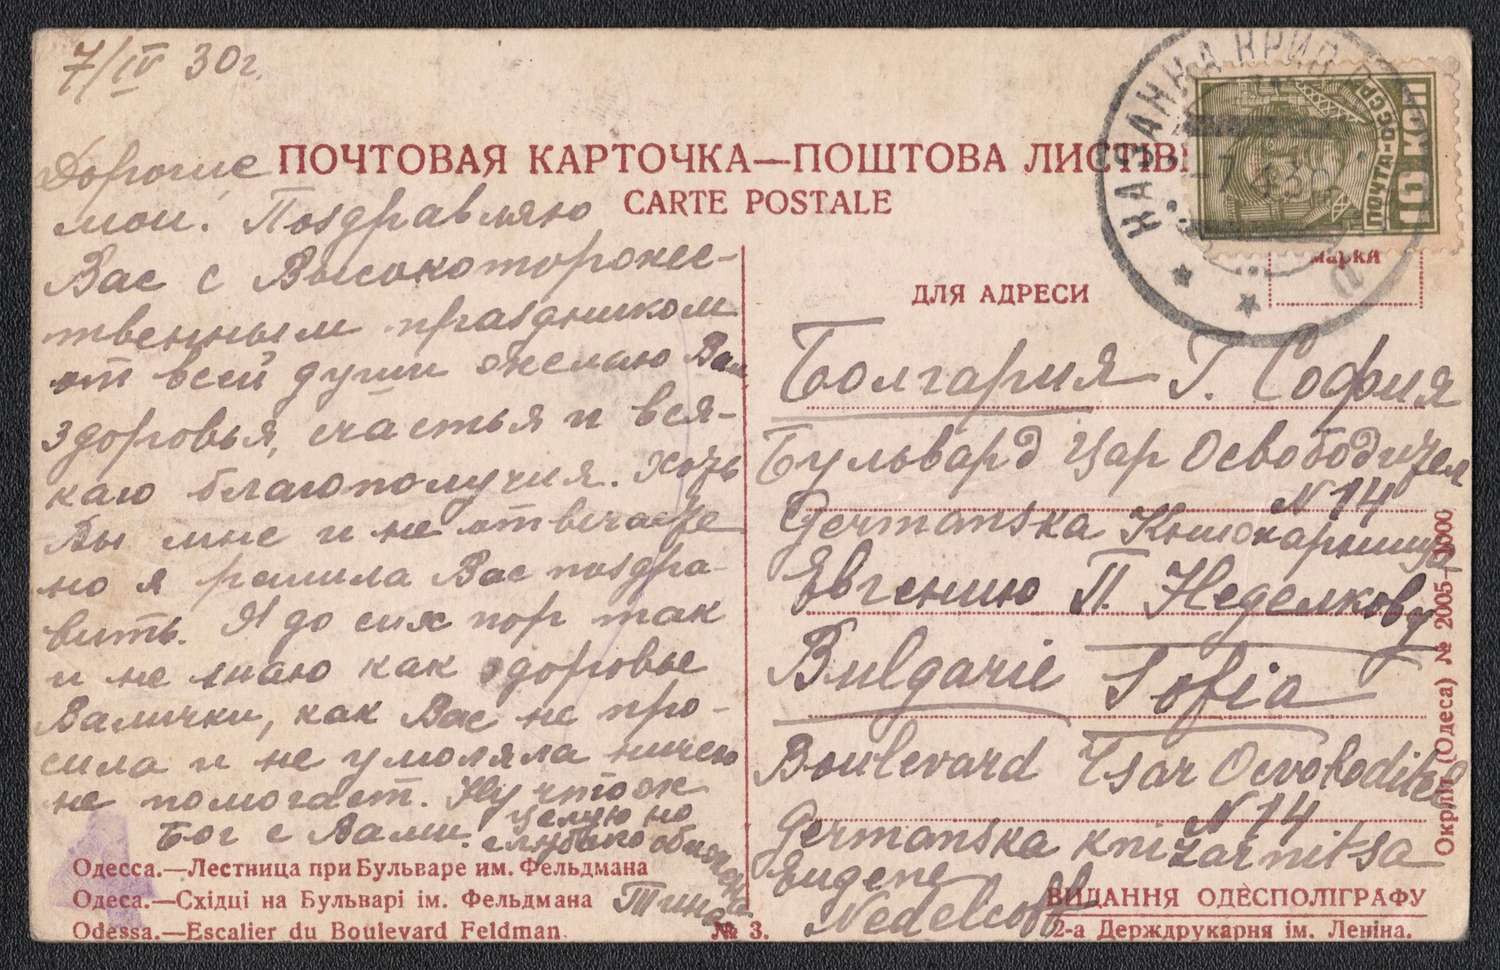 7/IV 30г.
ПОЧТОВАЯ КАРТОЧКА—ПОШТОВА ЛИСТІВ
CARTE POSTALE
Дорогие
мои! Поздравляю
Вас с Высокоторжес-
твенным праздником
от всей души желаю Вам
здоровья, счастья и вся-
каго благополучия. Хоть
Вы мне и не отвечаете
но я решила Вас поздра-
вить. Я до сих пор так
и не знаю как здоровье
Валички, как Вас не про-
сила и не умоляла ничего
не помогает. Ну что ж
Бог с Вами. Целую но
глубоко обиженная
Тина
Одесса.—Лестница при Бульваре им. Фельдмана
Одеса.—Східці на Бульварі ім. Фельдмана
Odessa.—Escalier du Boulevard Feldman.
№ 3.
КАЗАНКА КРИВ
7 4 30
ПОЧТА-СССР
10 КОП
марки
ДЛЯ АДРЕСИ
Болгария Г. София
Бульвард Цар Освободител
N 14
Germanska Книжарница
Евгению П. Неделкову
Bulgarie Sofia
Boulevard Tsar Osvoboditel
N 14
Germanska knizarnitsa
Eugene
Nedelcoff
ВИДАННЯ ОДЕСПОЛІГРАФУ
2-а Держдрукарня ім. Леніна.
Окрліт (Одеса) № 2005—3000